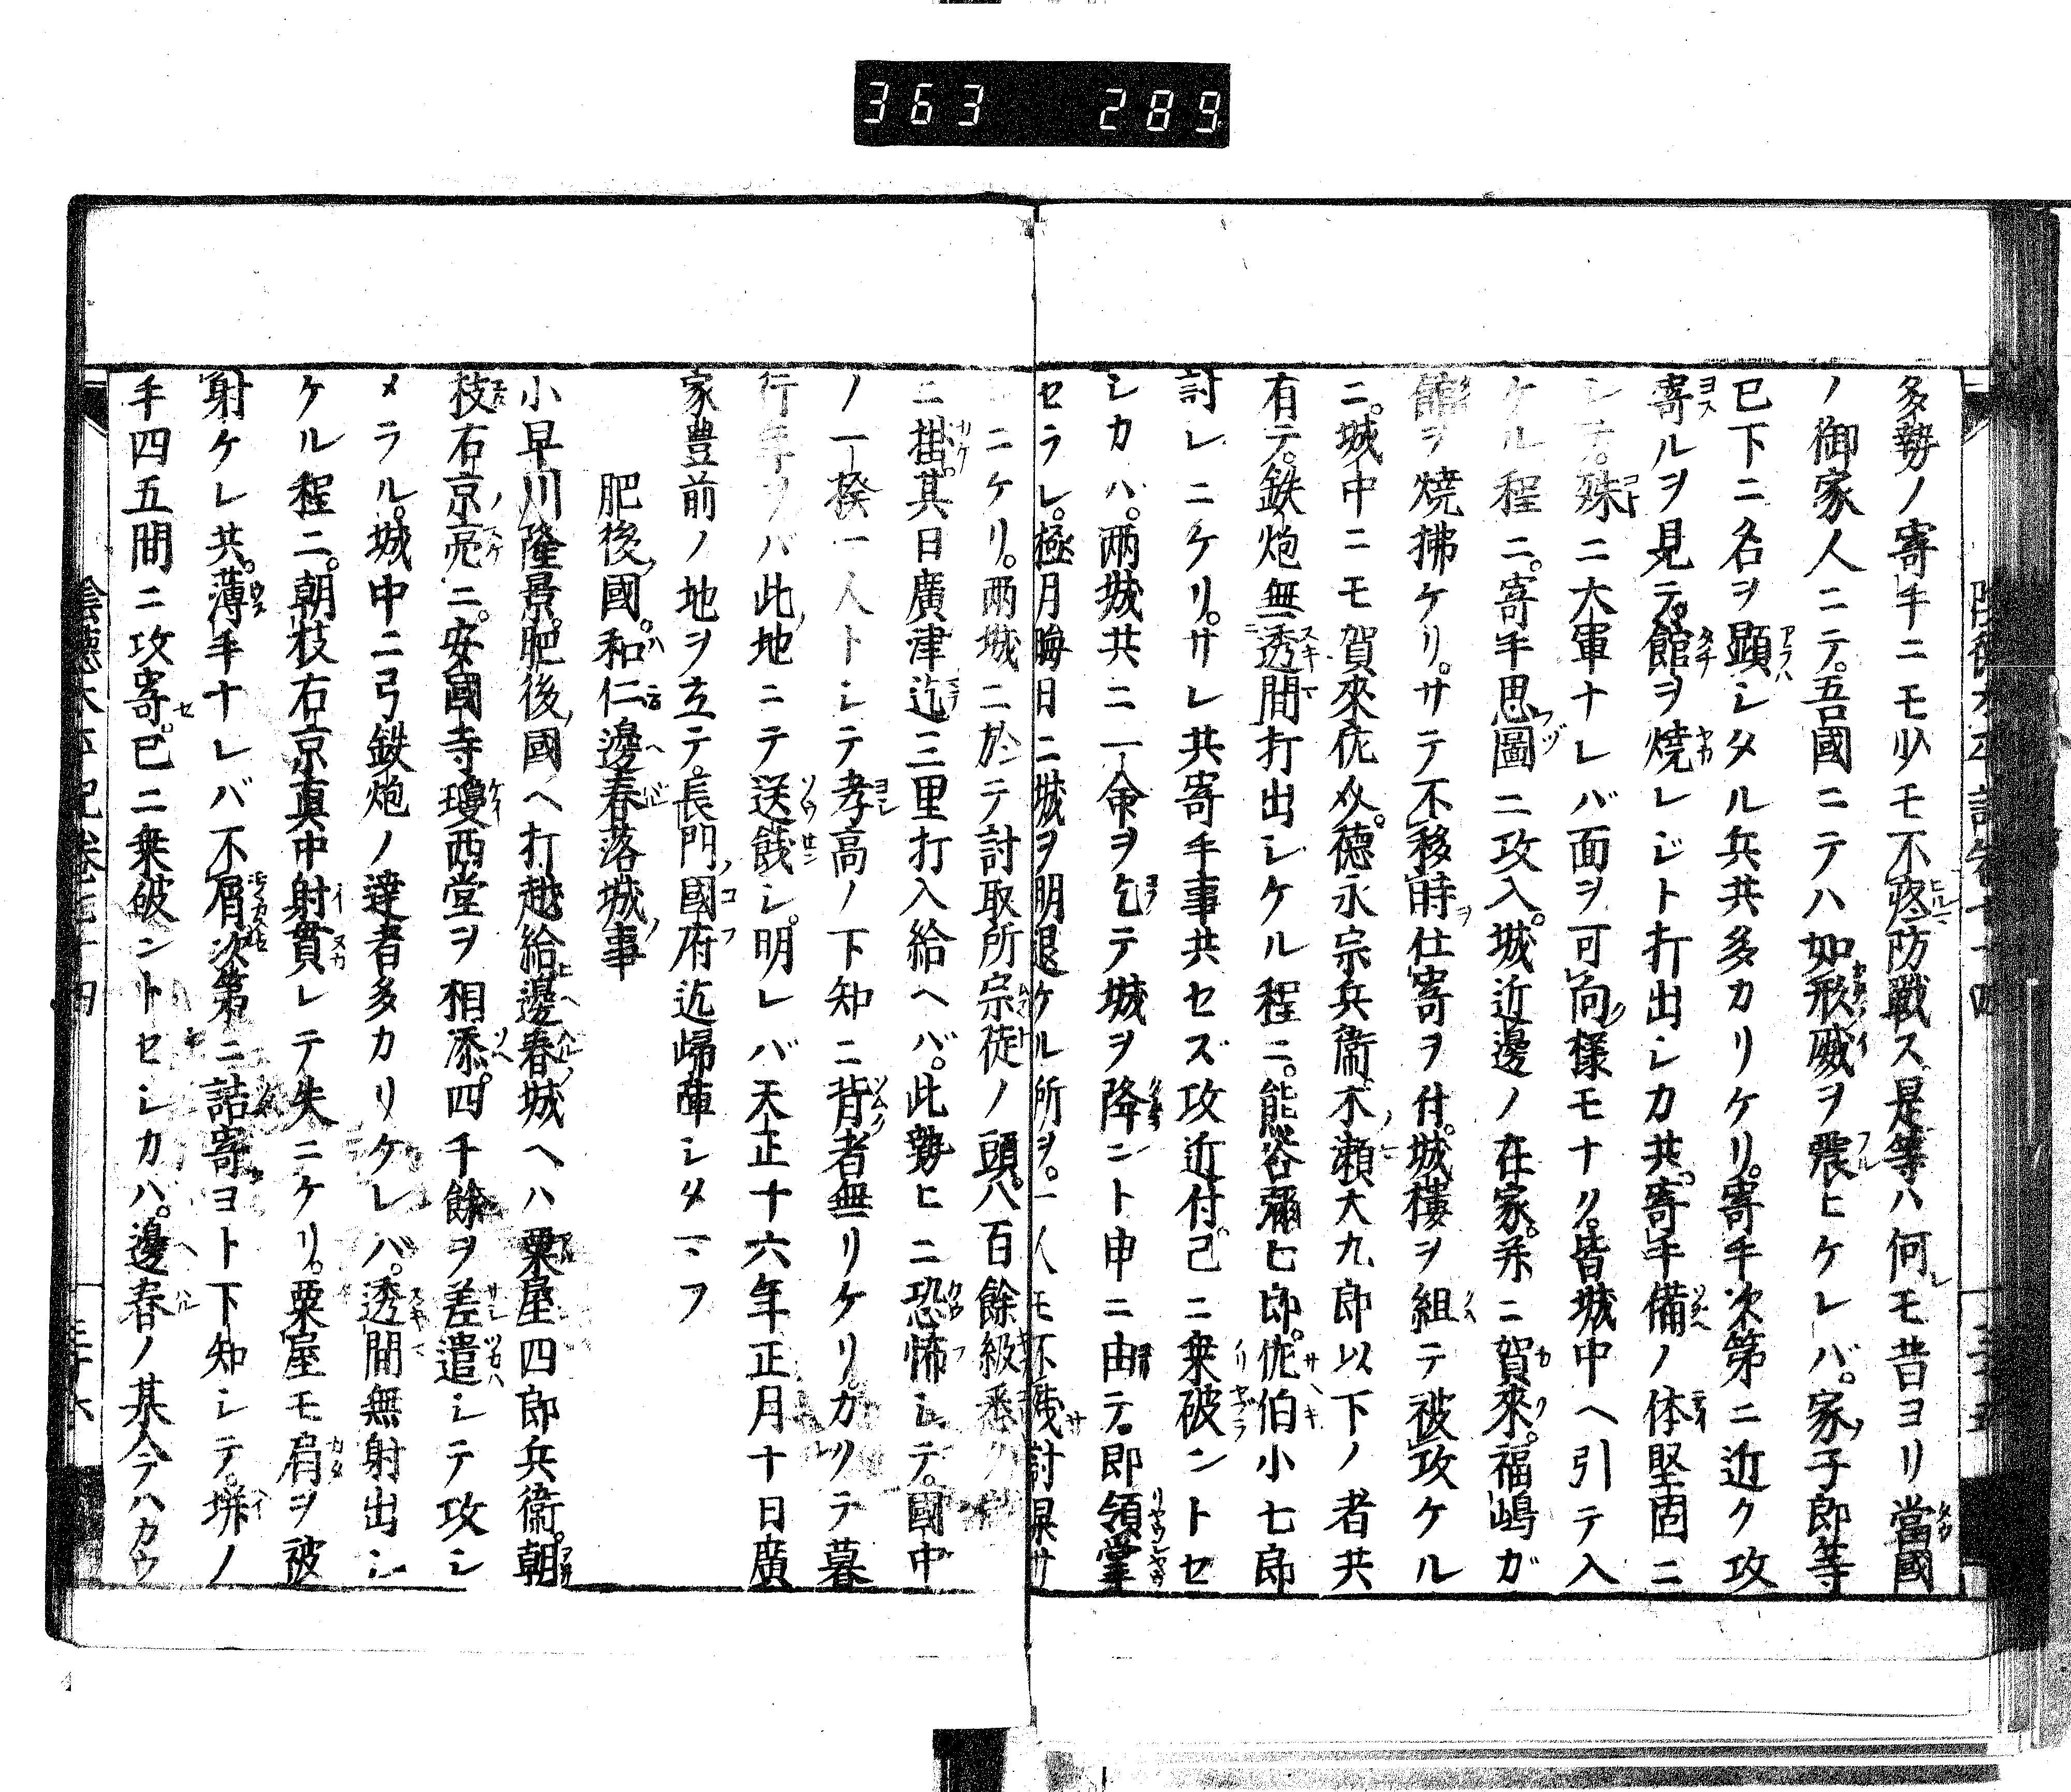 363 289
多勢ノ寄手ニモ少モ不疼防戦ス是等ハ何レモ昔ヨリ當國
ノ御家人ニテ。吾國ニテハ如形威ヲ震ヒケレバ。家ノ子郎等
已下ニ名ヲ顕シタル兵共多カリケリ。寄手次第ニ近ク攻
寄ルヲ見テ。館ヲ焼レジト打出シカ共。寄手備ノ体堅固ニ
シテ。殊ニ大軍ナレバ面ヲ可向様モナリ。皆城中ヘ引テ入
ケル程ニ。寄手思圖ニ攻入。城近邊ノ在家。并ニ賀來。福嶋ガ
館ヲ焼拂ケリ。サテ不移時仕寄ヲ付。城樓ヲ組テ被攻ケル
ニ。城中ニモ賀來佐。德永宗兵衞。不瀬大九郎以下ノ者共
有テ。鉄炮無透間打出シケル程ニ。熊谷彌七郎。佐伯小七郎
討レニケリ。サレ共寄手事共セズ攻近付。已ニ乗破ントセ
シカハ。兩城共ニ一命ヲ乞テ城ヲ降ント申ニ由テ。即領掌
セラレ。極月晦日ニ城ヲ明退ケル所ヲ。一人モ不残討果サ
ニケリ。兩城ニ於テ討取所宗徒ノ頭。八百餘級悉ク
ニ掛。其日廣津迄三里打入給ヘバ。此勢ヒニ恐怖シテ。國中
ノ一揆一人トシテ孝高ノ下知ニ背者無リケリ。カクテ暮
行年ヲバ此地ニテ送餞シ。明レバ天正十六年正月十日廣
家豊前ノ地ヲ立テ。長門ノ國府迄歸陣シタマフ
肥後國。和仁邊春落城事
小早川隆景。肥後國ヘ打越給邊春城ヘハ粟屋四郎兵衞。朝
枝右京亮ニ。安國寺瓊西堂ヲ相添。四千餘ヲ差遣シテ攻シ
メラル。城中ニ弓鉄炮ノ達者多カリケレバ。透間無射出シ
ケル程ニ。朝枝右京真中射貫レテ失ニケリ。粟屋モ肩ヲ被
射ケレ共。薄手ナレバ不屑次第ニ詰寄ヨト下知シテ。塀ノ
手四五間ニ攻寄。已ニ乗破ントセシカハ。邊春ノ某今ハカウ